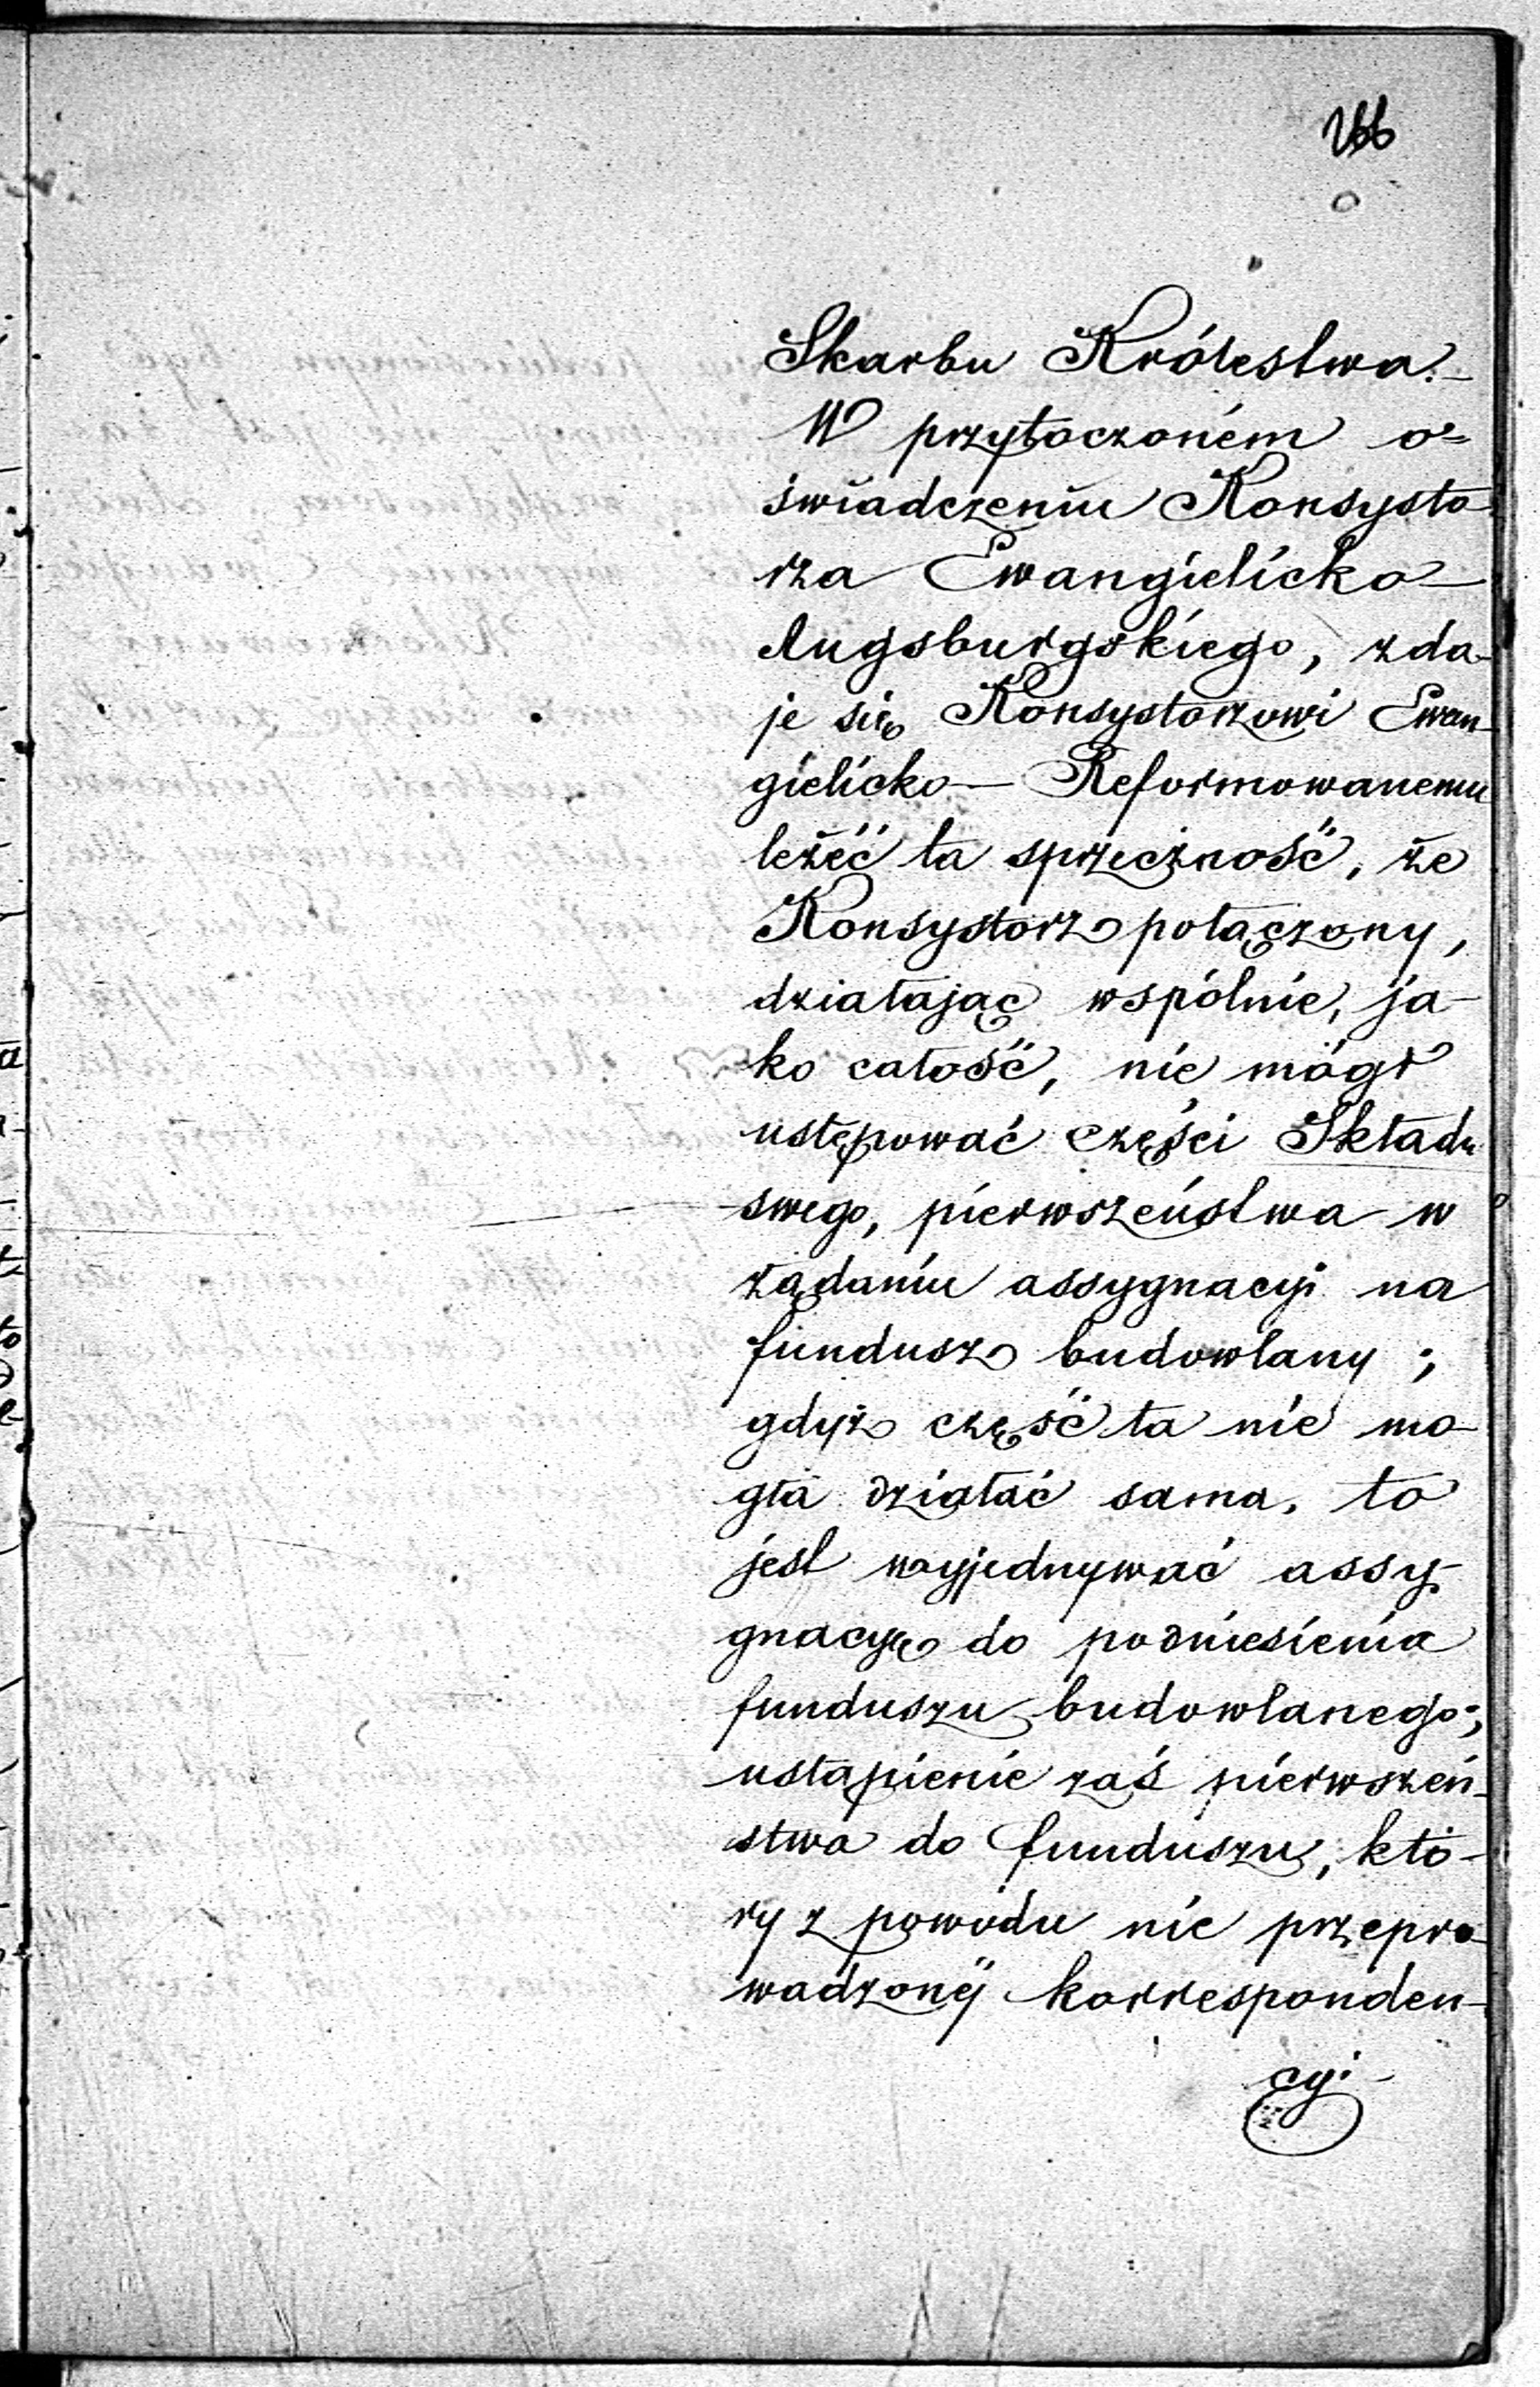 266
Skarbu Królestwa.–
W przytoczoném o=
świadczeniu Konsysto-
rza Ewangielicko–
Augsburgskiego, zda-
je się Konsystorzowi Ewan-
gielicko– Reformowanemu
leżéć ta sprzeczność, że
Konsystorz połączony,
działając wspólnie, ja-
ko całość, nie mógł
ustępować części Składu
swego, pierwszeństwa w
żądaniu assygnacyi na
fundusz budowlany;
gdyż część ta nie mo-
gła działać sama, to
jest wyjednywać assy-
gnacyę do podniesienia
funduszu budowlanego;
ustąpienie zaś pierwszeń-
stwa do funduszu, któ-
ry z powodu nie przepro-
wadzonéj korresponden-
cyi-